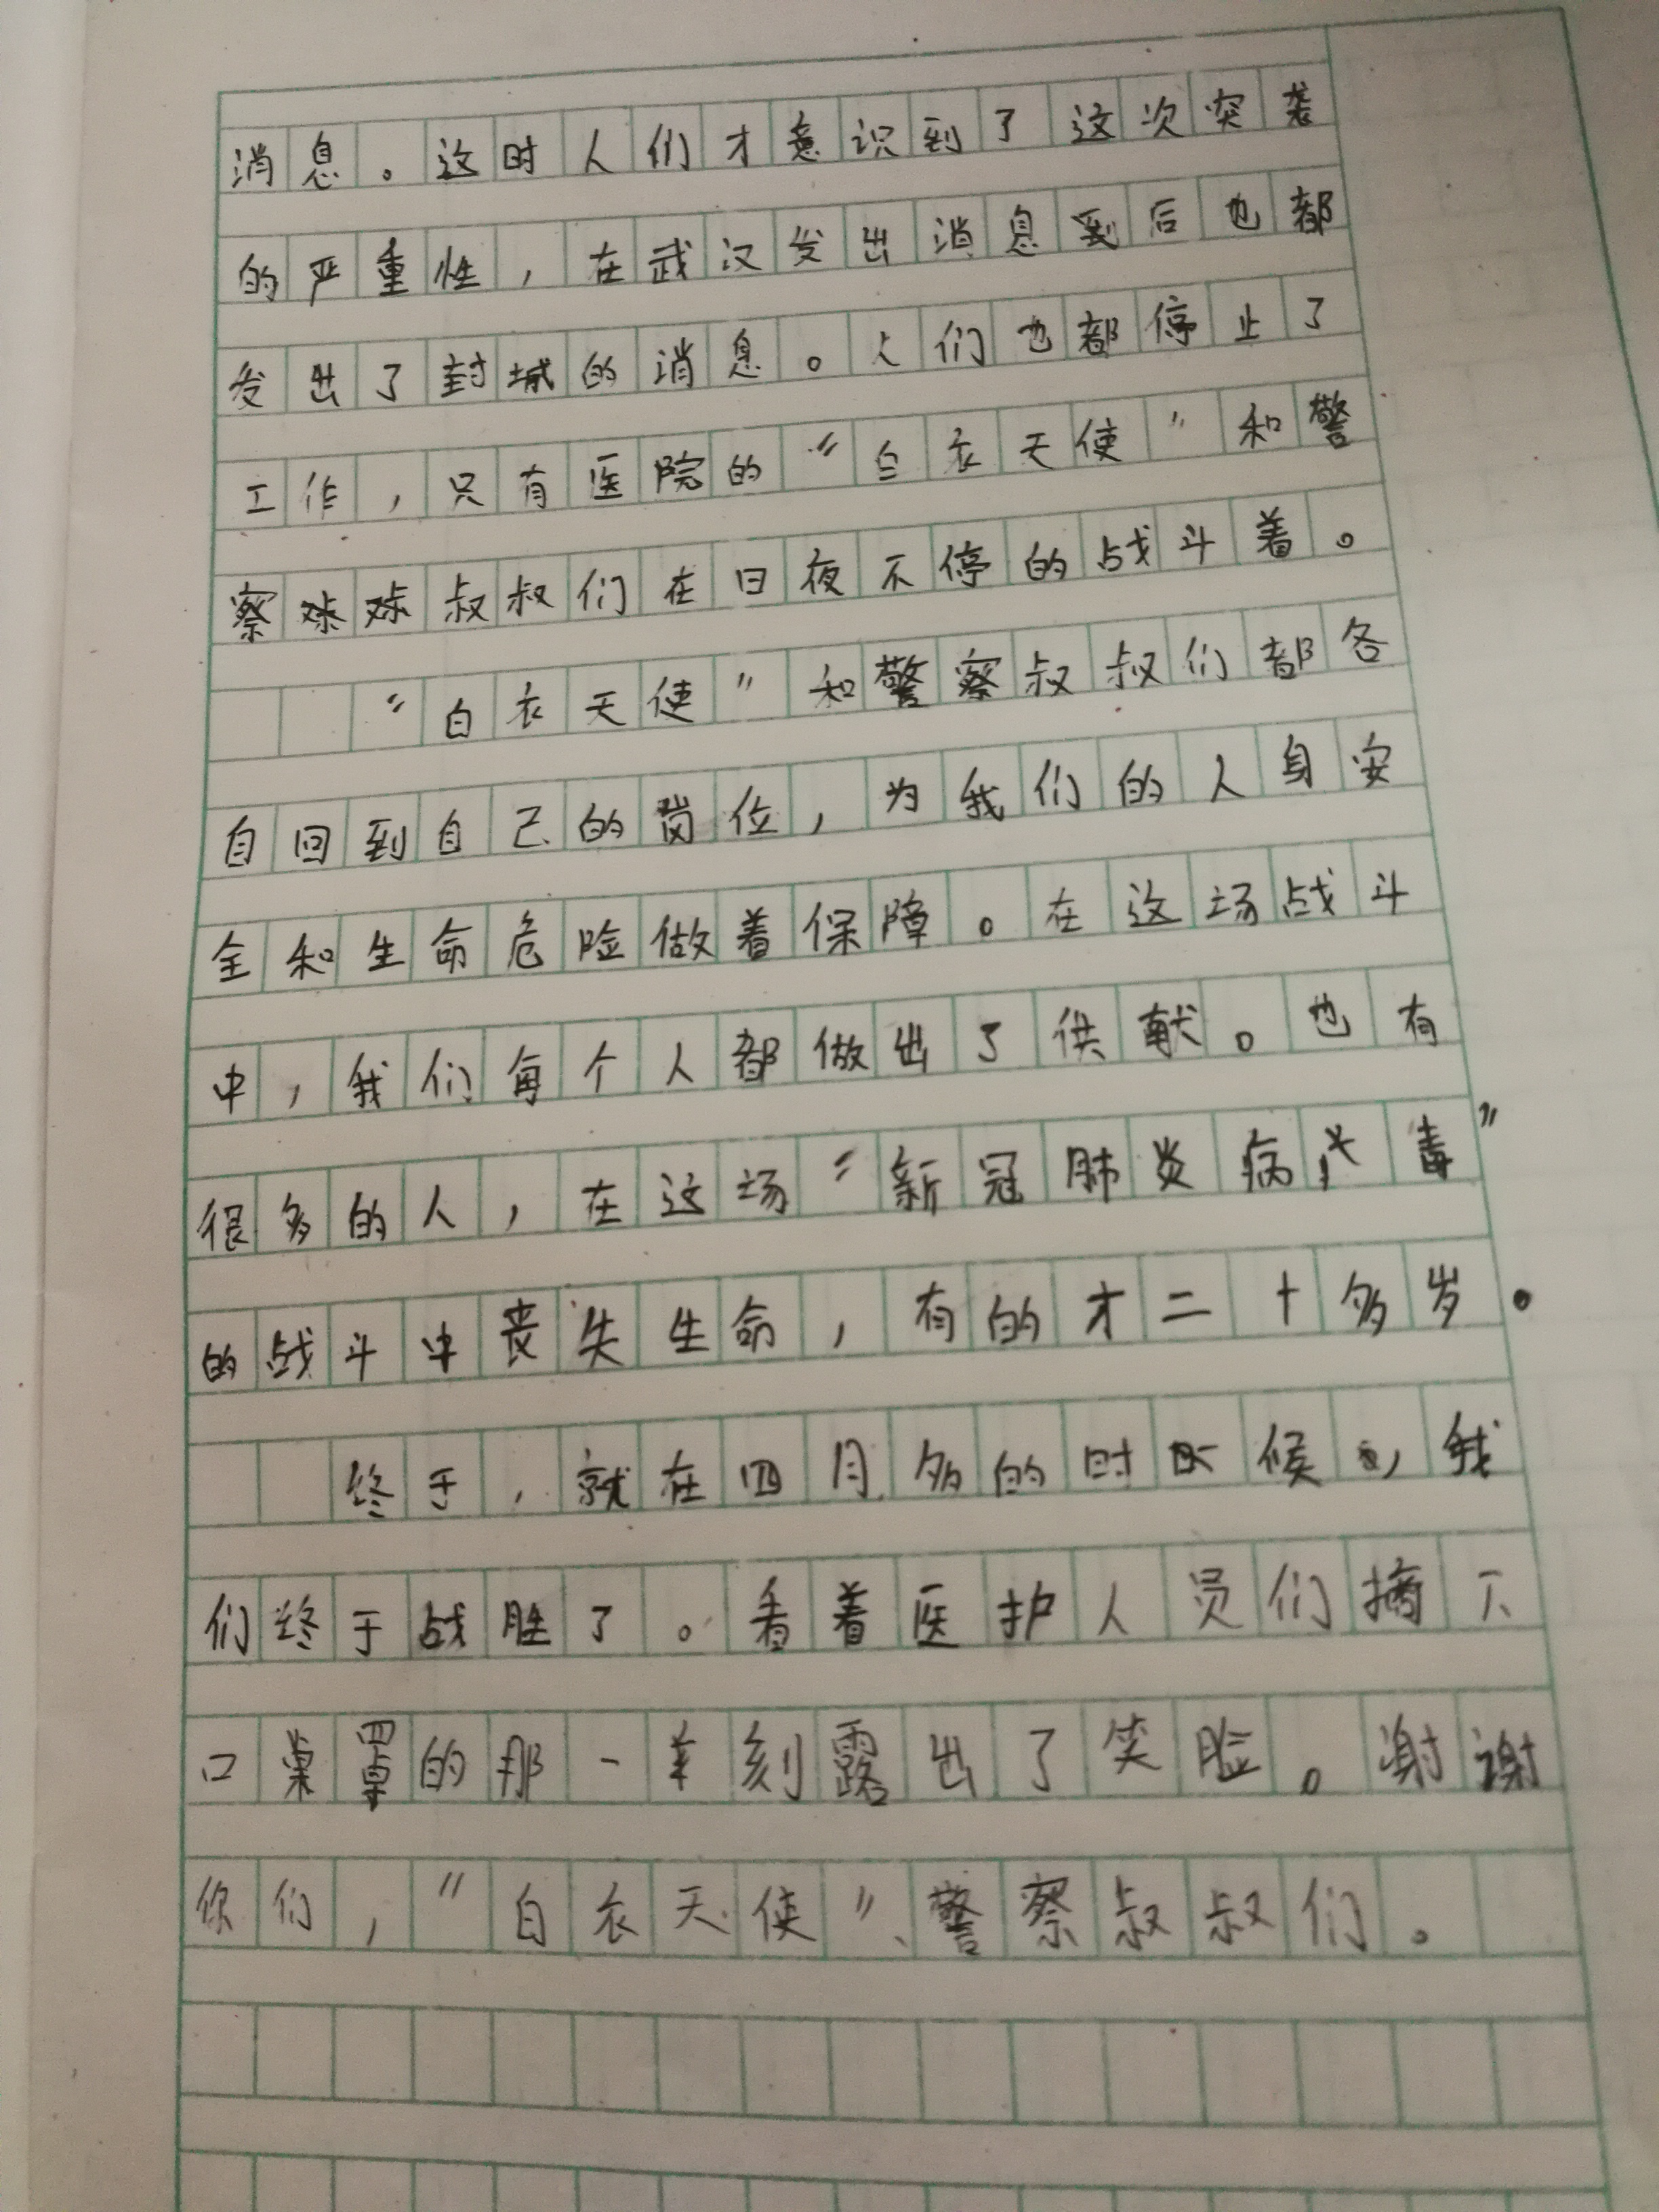 消息。这时人们才意识到了这次突袭
的严重性，在武汉发出消息后也都
发出了封城的消息。人们也都停止了
工作，只有医院的“白衣天使”和警
察叔叔们在日夜不停的战斗着。
“白衣天使”和警察叔叔们都各
自回到自己的岗位，为我们的人身安
全和生命危险做着保障。在这场战斗
中，我们每个人都做出了供献。也有
很多的人，在这场“新冠肺炎病毒”
的战斗中丧失生命，有的才二十多岁。
终于，就在四月多的时候，我
们终于战胜了。看着医护人员们摘下
口罩的那一刻露出了笑脸。谢谢
你们，“白衣天使”、警察叔叔们。